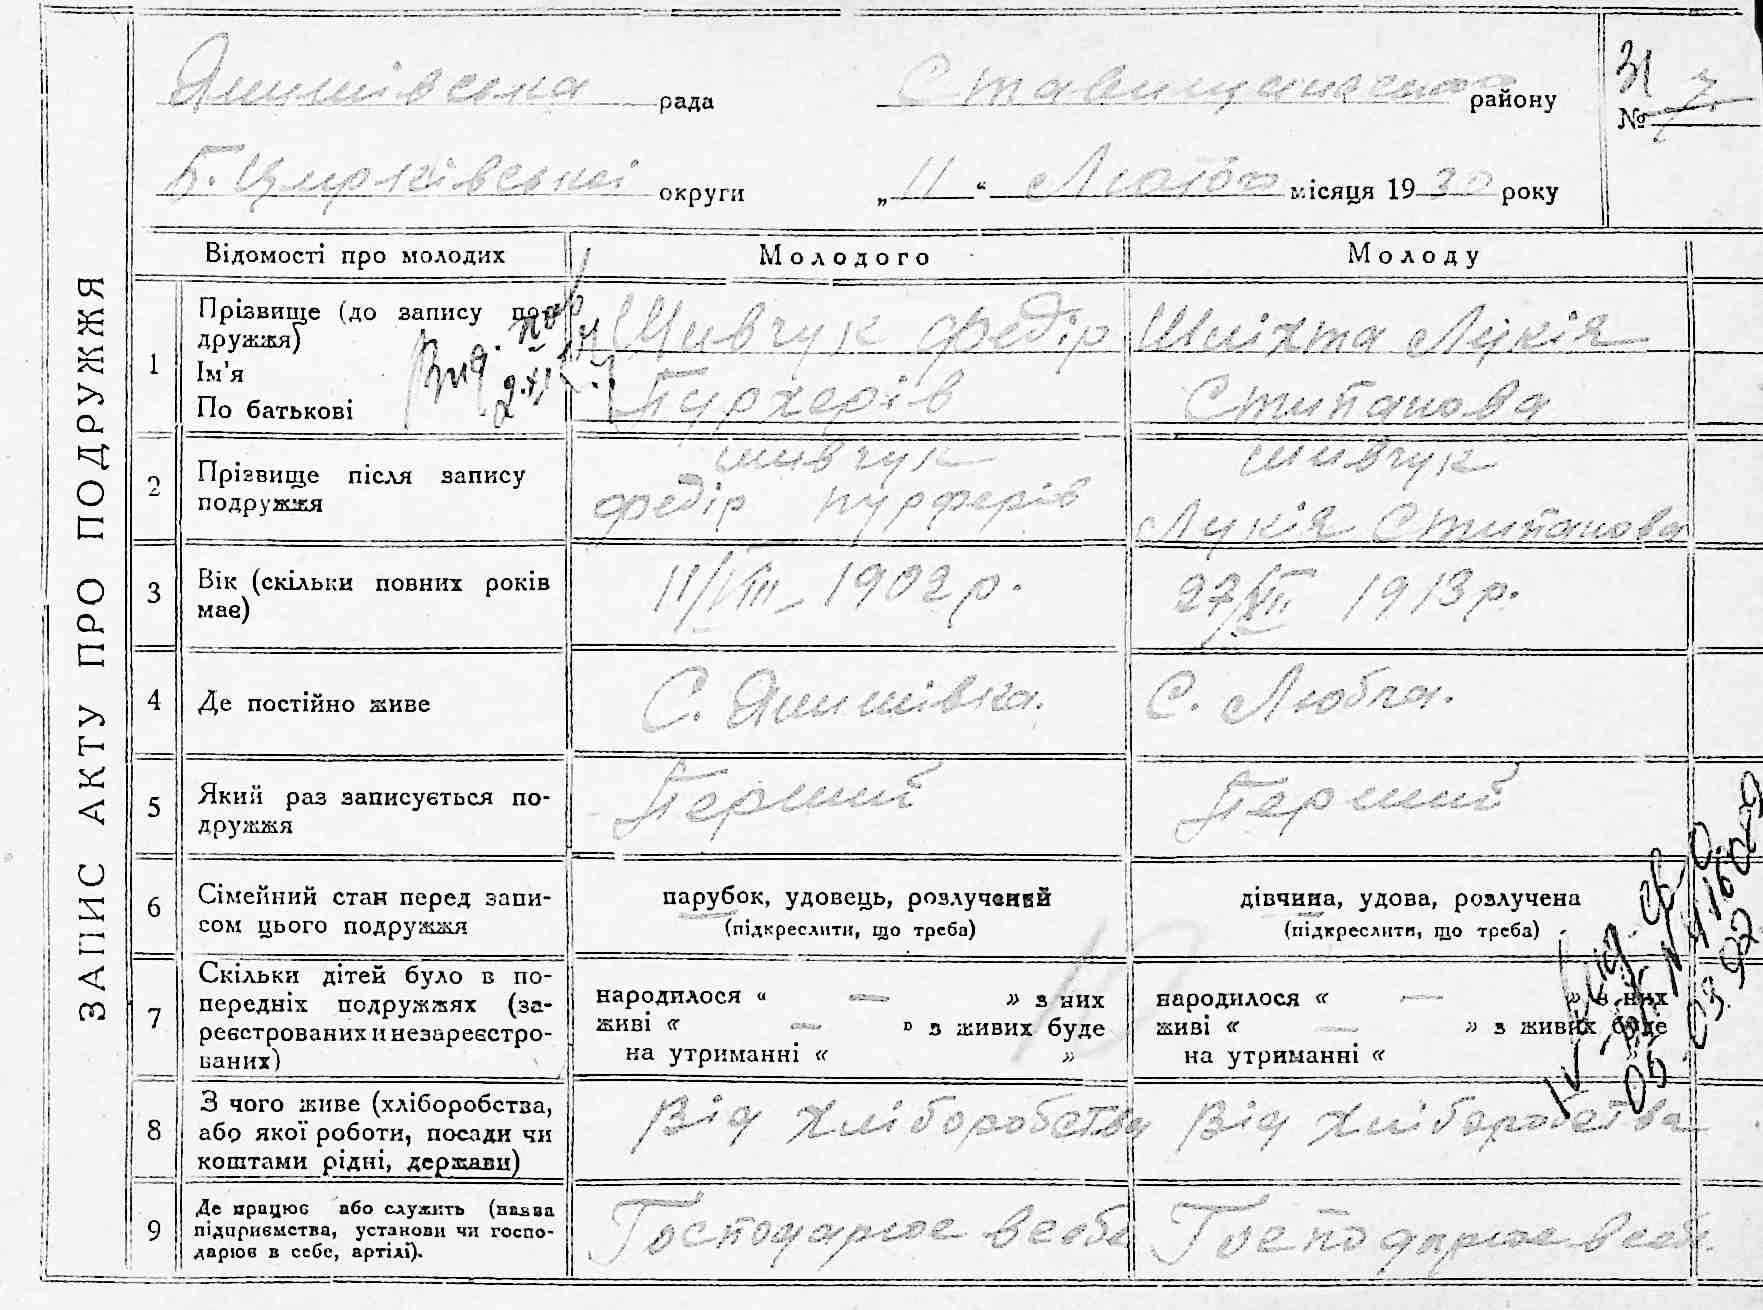 ЗАПИС АКТУ ПРО ПОДРУЖЖЯ
Янишівська рада Ставищанського району
31
№ 7
Б. Церківської округи „ 11 “ Лютого місяця 1930 року
Відомості про молодих Молодого Молоду
1 Прізвище (до запису по-
дружжя)
Ім'я
По батькові
Шивчук Федір
Пурхерів
Шліхта Лукія
Стипанова
2 Прізвище після запису
подружжя
шивчук
Федір пурферів
шивчук
Лукія Стипанова
3 Вік (скільки повних років
має)
11/VIII – 1902 р.
27/VII 1913 р.
4 Де постійно живе
С. Янишівка.
С. Любча.
5 Який раз записується по-
дружжя
Перший
Перший
6 Сімейний стан перед запи-
сом цього подружжя
парубок, удовець, розлучений
(підкреслити, що треба)
дівчина, удова, розлучена
(підкреслити, що треба)
7 Скільки дітей було в по-
передніх подружжях (за-
реєстрованих и незареєстро-
ваних)
народилося “ — ” з них
живі “ — ” з живих буде
на утриманні “ ”
народилося “ — ” з них
живі “ — ” з живих буде
на утриманні “
8 З чого живе (хліборобства,
або якої роботи, посади чи
коштами рідні, держави)
Від хліборобства
Від хліборобства
9 Де працює або служить (назва
підприємства, установи чи госпо-
дарює в себе, артілі).
Господарює в себе
Господарює в себе